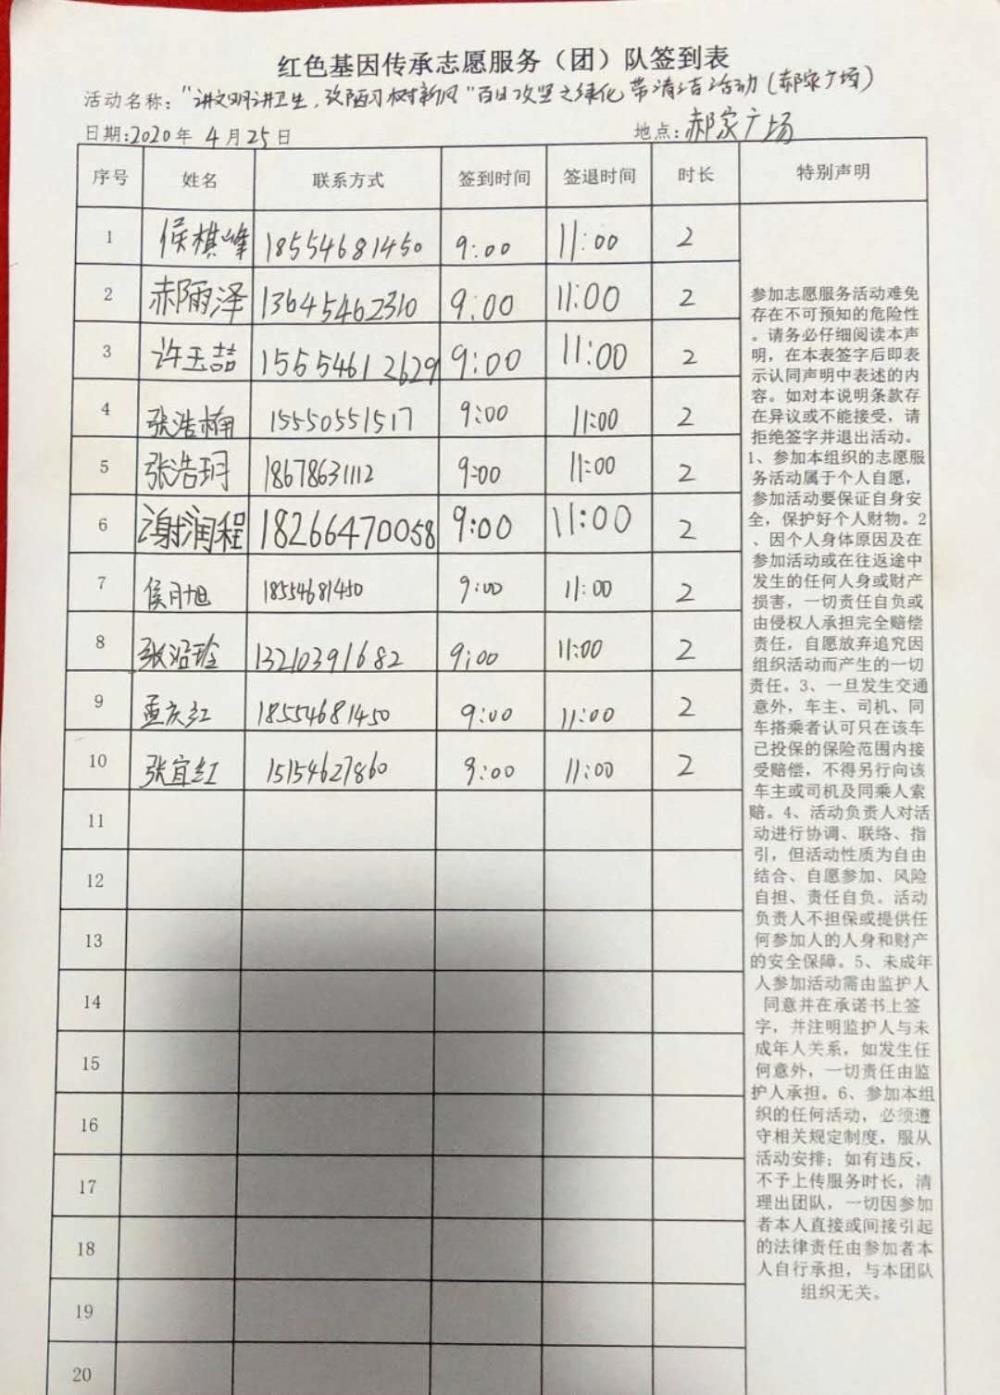 红色基因传承志愿服务（团）队签到表
活动名称："讲文明讲卫生，改陋习树新风"百日攻坚之绿化带清洁活动（郝家广场）
日期:2020年 4月25日 地点:郝家广场
序号 姓名 联系方式 签到时间 签退时间 时长 特别声明
1 侯棋峰 18554681450 9:00 11:00 2
2 郝雨泽 13645462310 9:00 11:00 2
3 许玉喆 15554612629 9:00 11:00 2
4 张浩楠 15550551517 9:00 11:00 2
5 张浩玥 18678631112 9:00 11:00 2
6 谢润程 18266470058 9:00 11:00 2
7 侯月旭 18554681450 9:00 11:00 2
8 张滔玲 13210391682 9:00 11:00 2
9 孟庆红 18554681450 9:00 11:00 2
10 张宜红 15154627860 9:00 11:00 2
11
12
13
14
15
16
17
18
19
20
参加志愿服务活动难免
存在不可预知的危险性
。请务必仔细阅读本声
明，在本表签字后即表
示认同声明中表述的内
容。如对本说明条款存
在异议或不能接受，请
拒绝签字并退出活动。
1、参加本组织的志愿服
务活动属于个人自愿，
参加活动要保证自身安
全，保护好个人财物。2
、因个人身体原因及在
参加活动或在往返途中
发生的任何人身或财产
损害，一切责任自负或
由侵权人承担完全赔偿
责任，自愿放弃追究因
组织活动而产生的一切
责任。3、一旦发生交通
意外，车主、司机、同
车搭乘者认可只在该车
已投保的保险范围内接
受赔偿，不得另行向该
车主或司机及同乘人索
赔。4、活动负责人对活
动进行协调、联络、指
引，但活动性质为自由
结合、自愿参加、风险
自担、责任自负。活动
负责人不担保或提供任
何参加人的人身和财产
的安全保障。5、未成年
人参加活动需由监护人
同意并在承诺书上签
字，并注明监护人与未
成年人关系，如发生任
何意外，一切责任由监
护人承担。6、参加本组
织的任何活动，必须遵
守相关规定制度，服从
活动安排；如有违反，
不予上传服务时长，清
理出团队，一切因参加
者本人直接或间接引起
的法律责任由参加者本
人自行承担，与本团队
组织无关。